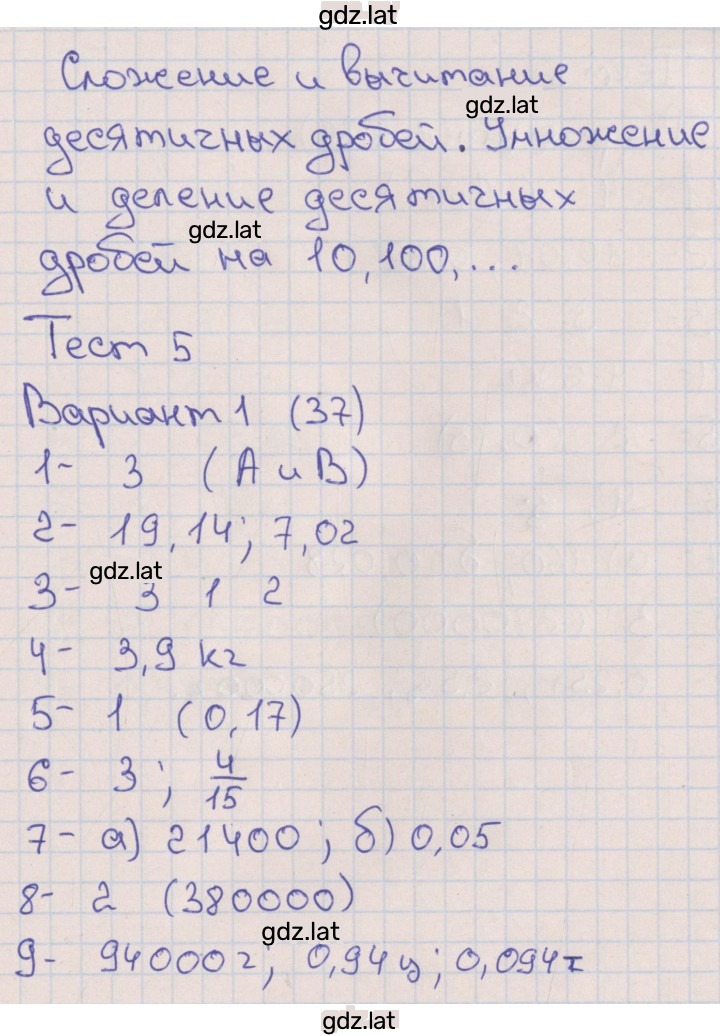 gdz.lat
Сложение и вычитание
gdz.lat
десятичных дробей. Умножение
и деление десятичных
gdz.lat
дробей на 10, 100, ...
Тест 5
Вариант 1 (37)
1- 3 (А и В)
2- 19,14; 7,02
gdz.lat
3- 3 1 2
4- 3,9 кг
5- 1 (0,17)
6- 3; 4/15
7- а) 21400; б) 0,05
8- 2 (380000)
gdz.lat
9- 94000г; 0,94ц; 0,094т
gdz.lat